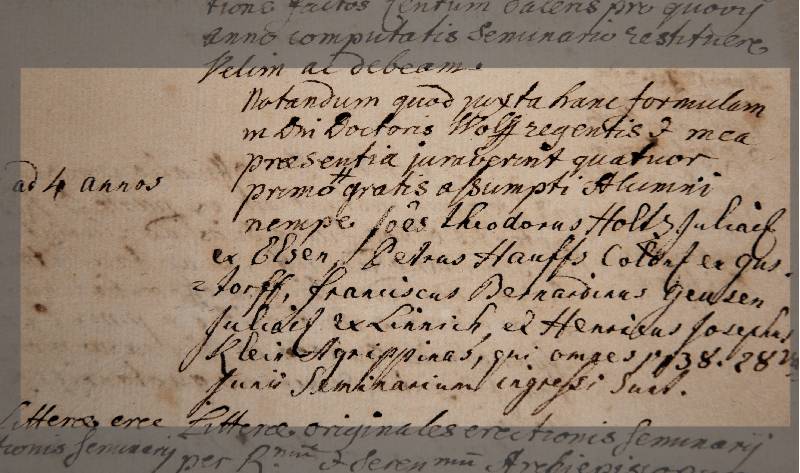 tione factos Centum daleris pro quovis
anno computatis Seminario restituere
Velim ac debeam.
Notandum quod juxta hanc formulam
in Dni Doctoris Wolff regentis & mea
præsentia juraverint quatuor
ad 4 annos
primo # gratis assumpti Alumni
nempe Joês Theodorus Holtz Juliac
ex Elsen, Petrus Hauffs Colon ex Gus-
=torff, Franciscus Bernardinus Geusen
Juliac ex Linnich, et Henricus Josephus
Klein Agrippinas, qui omnes 1738. 28
Junii Seminarium ingressi sunt.
Litteræ erec
tionis Seminarii
Litteræ originales erectionis Seminarii
per R. mum & Seren mum Archiepiscop